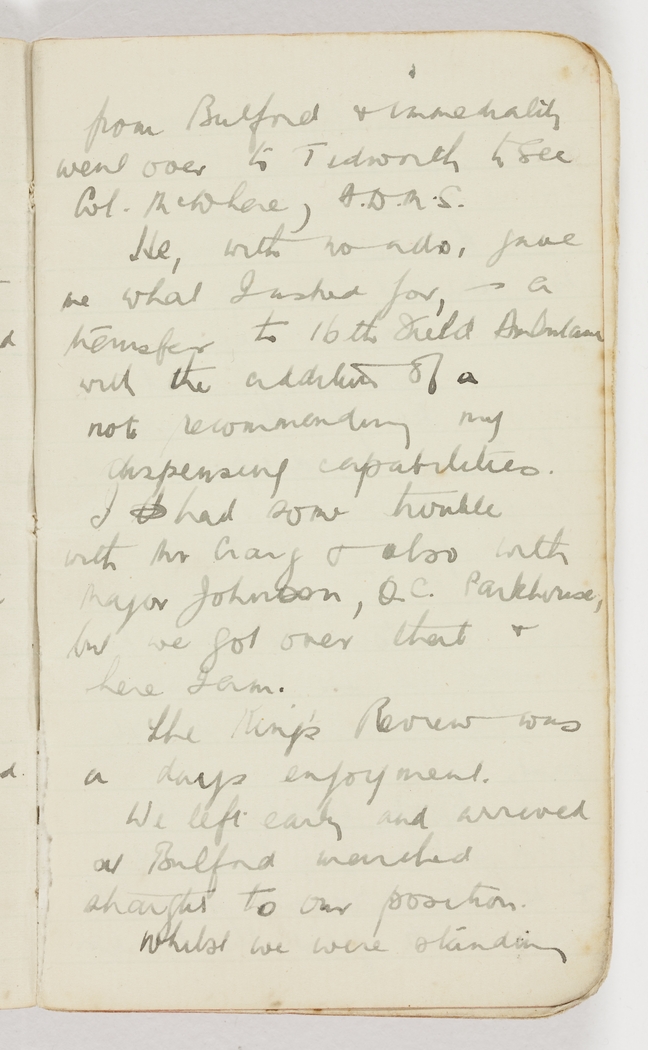 from Bulford & immediately
went over to Tidworth to see
Col. McWhere, A.D.M.S.
He, with no ado, gave
me what I asked for, – a
transfer to 16th Field Ambulance
with the addition of a
note recommending my
dispensing capabilities.
I had some trouble
with Mr Craig & also with
Major Johnson, O.C. Parkhouse,
but we got over that &
here I am.
The King's Review was
a days enjoyment.
We left early and arrived
at Bulford marched
straight to our position.
Whilst we were standing